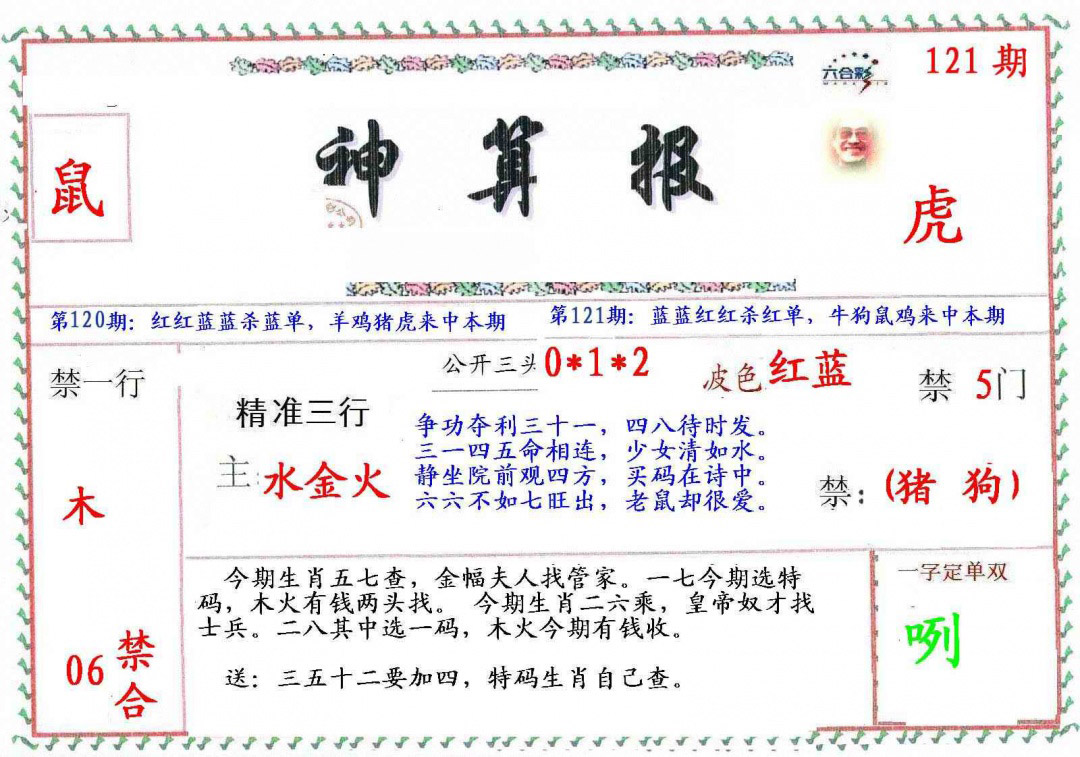 121期
六合彩
神算报
鼠
虎
第120期：红红蓝蓝杀蓝单，羊鸡猪虎来中本期
第121期：蓝蓝红红杀红单，牛狗鼠鸡来中本期
禁一行
公开三头0*1*2
波色红蓝
禁 5门
精准三行
主:水金火
争功夺利三十一，四八待时发。
三一四五命相连，少女清如水。
静坐院前观四方，买码在诗中。
六六不如七旺出，老鼠却很爱。
禁：(猪 狗)
木
今期生肖五七查，金幅夫人找管家。一七今期选特
码，木火有钱两头找。 今期生肖二六乘，皇帝奴才找
士兵。二八其中选一码，木火今期有钱收。
送：三五十二要加四，特码生肖自己查。
06禁合
一字定单双
咧